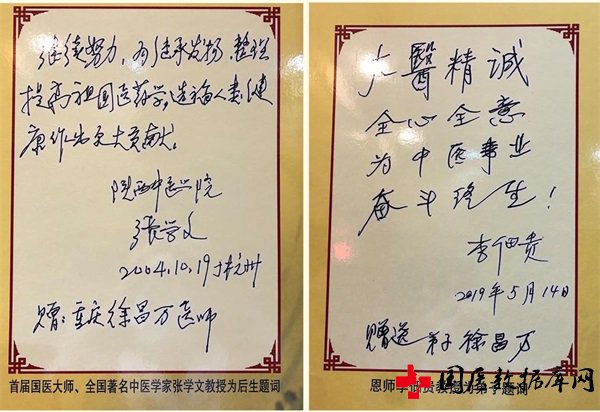 继续努力,为继承发扬、整理
提高祖国医药学,造福人类健
康作出更大贡献。
陕西中医学院
张学文
2004.10.19于杭州
赠:重庆徐昌万医师
首届国医大师、全国著名中医学家张学文教授为后生题词
大醫精诚
全心全意
为中医事业
奋斗终生!
李佃贵
2019年5月14日
赠送 弟子徐昌万
恩师李佃贵教授为弟子题词
国医数据库网